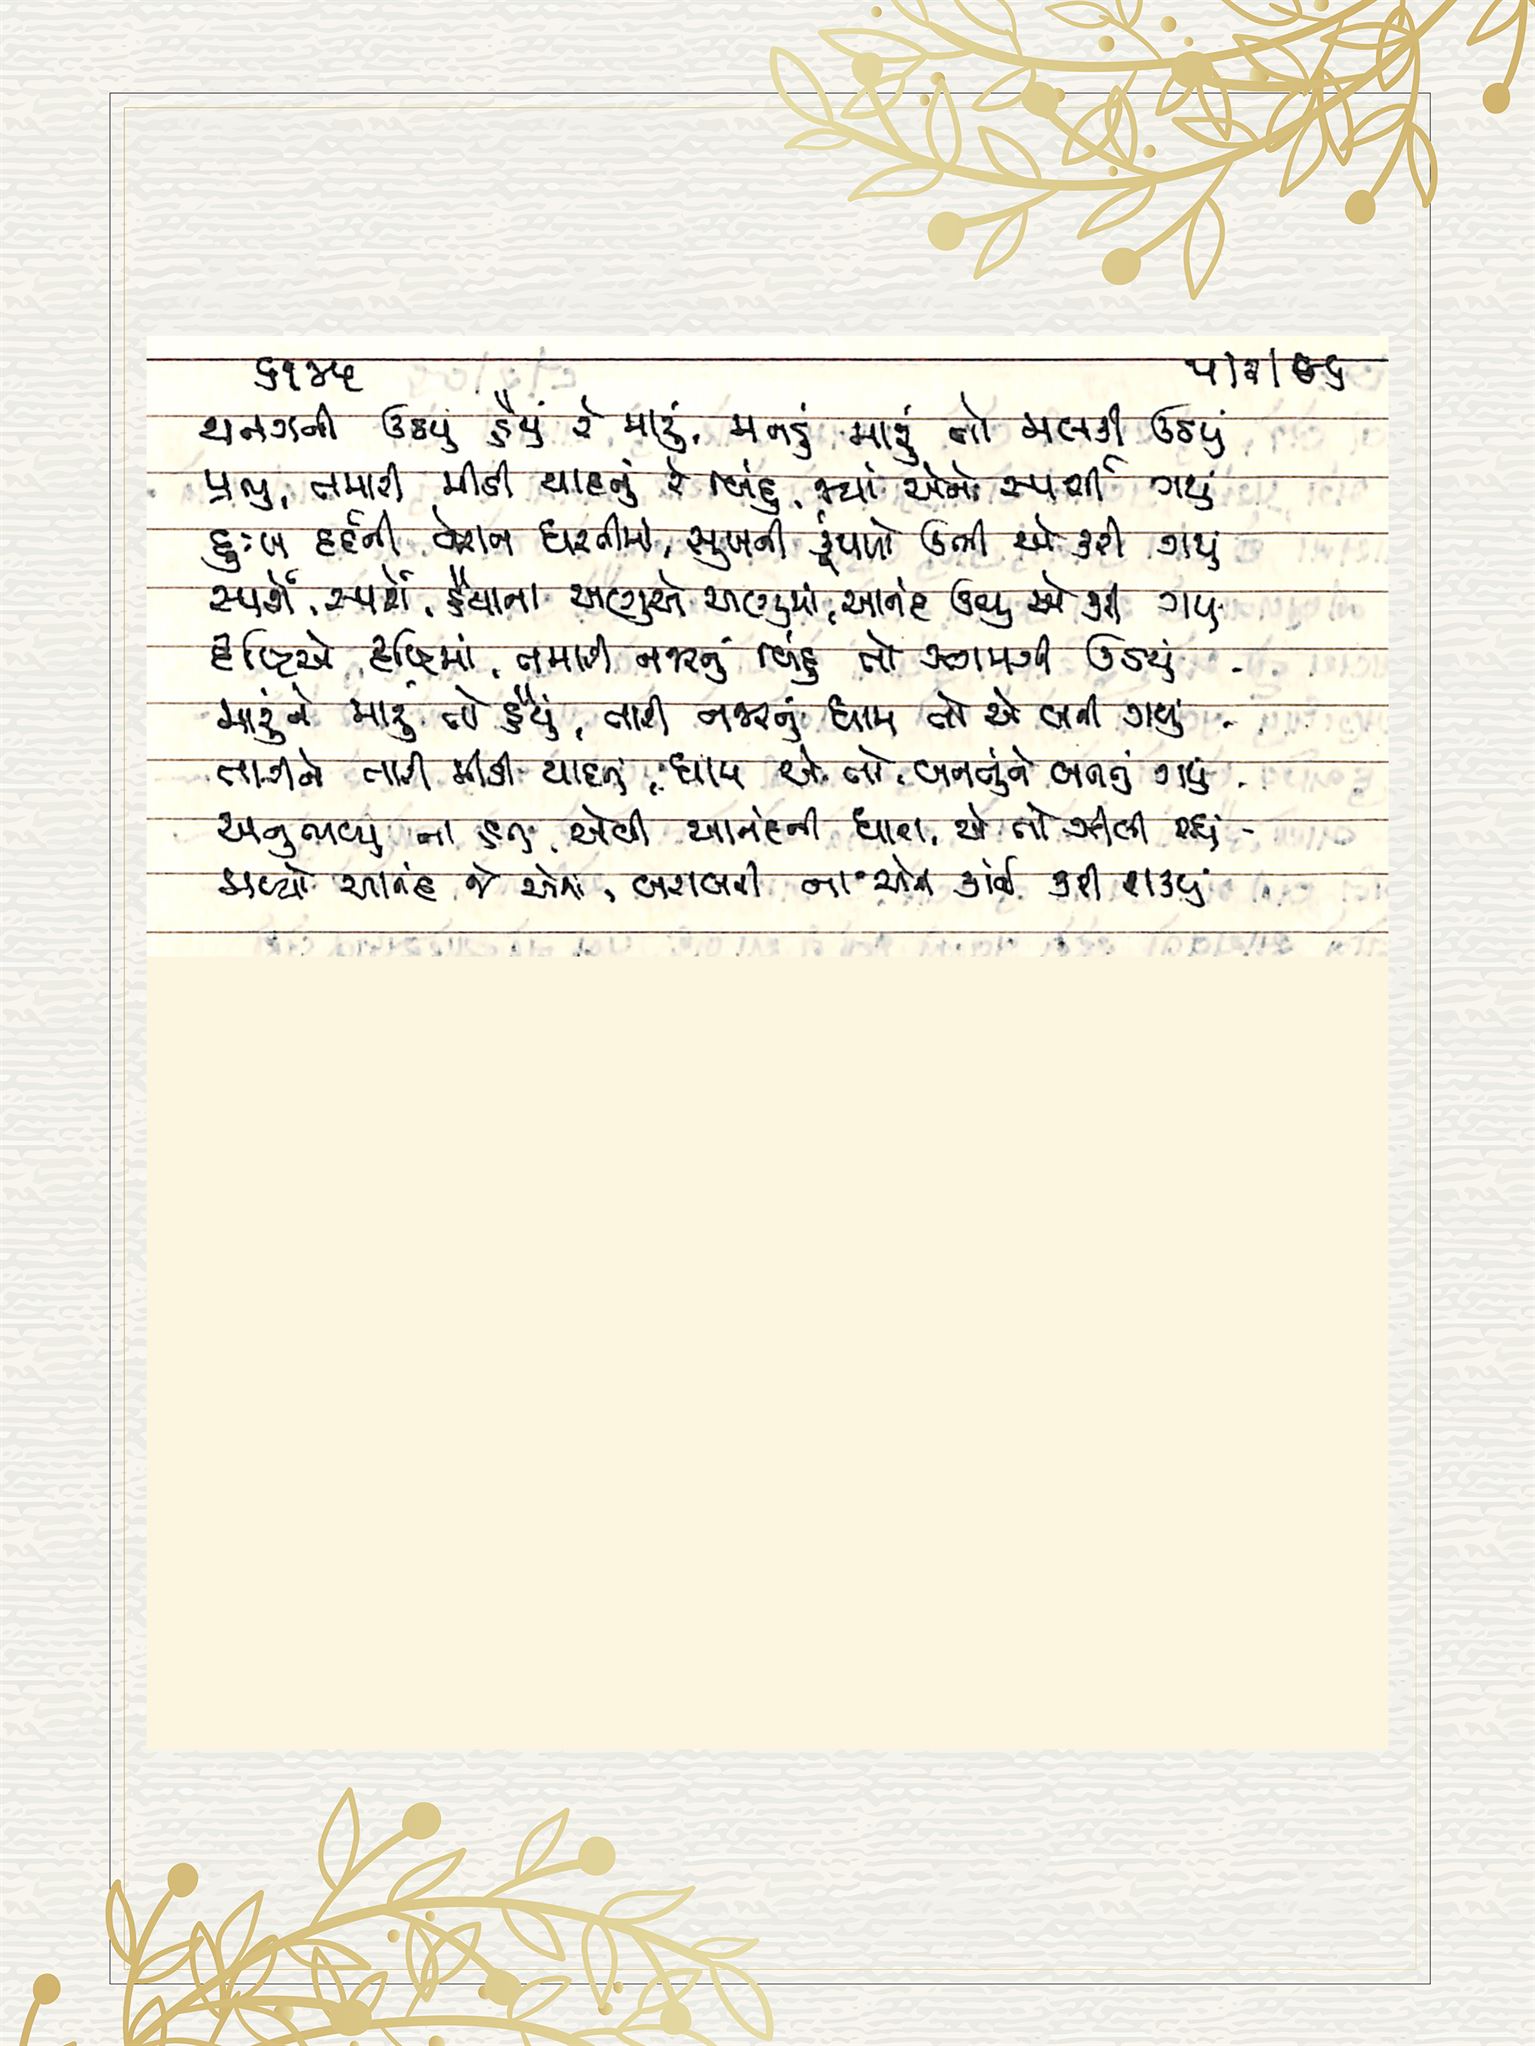 ૬૧૪૫ ૫/૨/૯૬
થનગની ઉઠયું હૈયું રે મારું, મનડું મારું તો મલકી ઉઠયું
પ્રભુ, તમારી મીઠી યાદનું રે બિંદુ, જ્યાં એને સ્પર્શી ગયું
દુઃખ દર્દની વેરાન ધરતીમાં, સુખની કૂંપળો ઉભી એ કરી ગયું
સ્પર્શે, સ્પર્શે, હૈયાના અણુએ અણુમાં, આનંદ ઉભું એ કરી ગયું
દૃષ્ટિએ દૃષ્ટિમાં, તમારી નજરનું બિંદુ તો ઝળહળી ઉઠયું -
મારુંને મારું તો હૈયું, તારી નજરનું ધામ તો એ બની ગયું -
તારીને તારી મીઠી યાદનું, ધામ એ તો, બનતુંને બનતું ગયું -
અનુભવ્યું ના હતું, એવી આનંદની ધારા, એ તો ઝીલી રહ્યું -
મળ્યો આનંદ જે એમાં, બરાબરી ના એની કોઈ કરી શક્યું